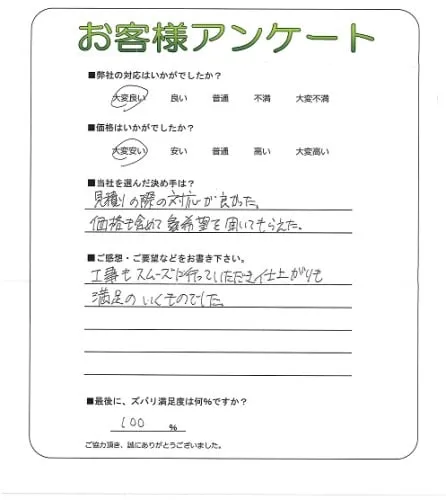 お客様アンケート
■弊社の対応はいかがでしたか？
大変良い 良い 普通 不満 大変不満
■価格はいかがでしたか？
大変安い 安い 普通 高い 大変高い
■当社を選んだ決め手は？
見積りの際の対応が良かった。
価格も含めて希望を聞いてもらえた。
■ご感想・ご要望などをお書き下さい。
工事もスムーズに行っていただき仕上がりも
満足のいくものでした。
■最後に、ズバリ満足度は何％ですか？
100 %
ご協力頂き、誠にありがとうございました。